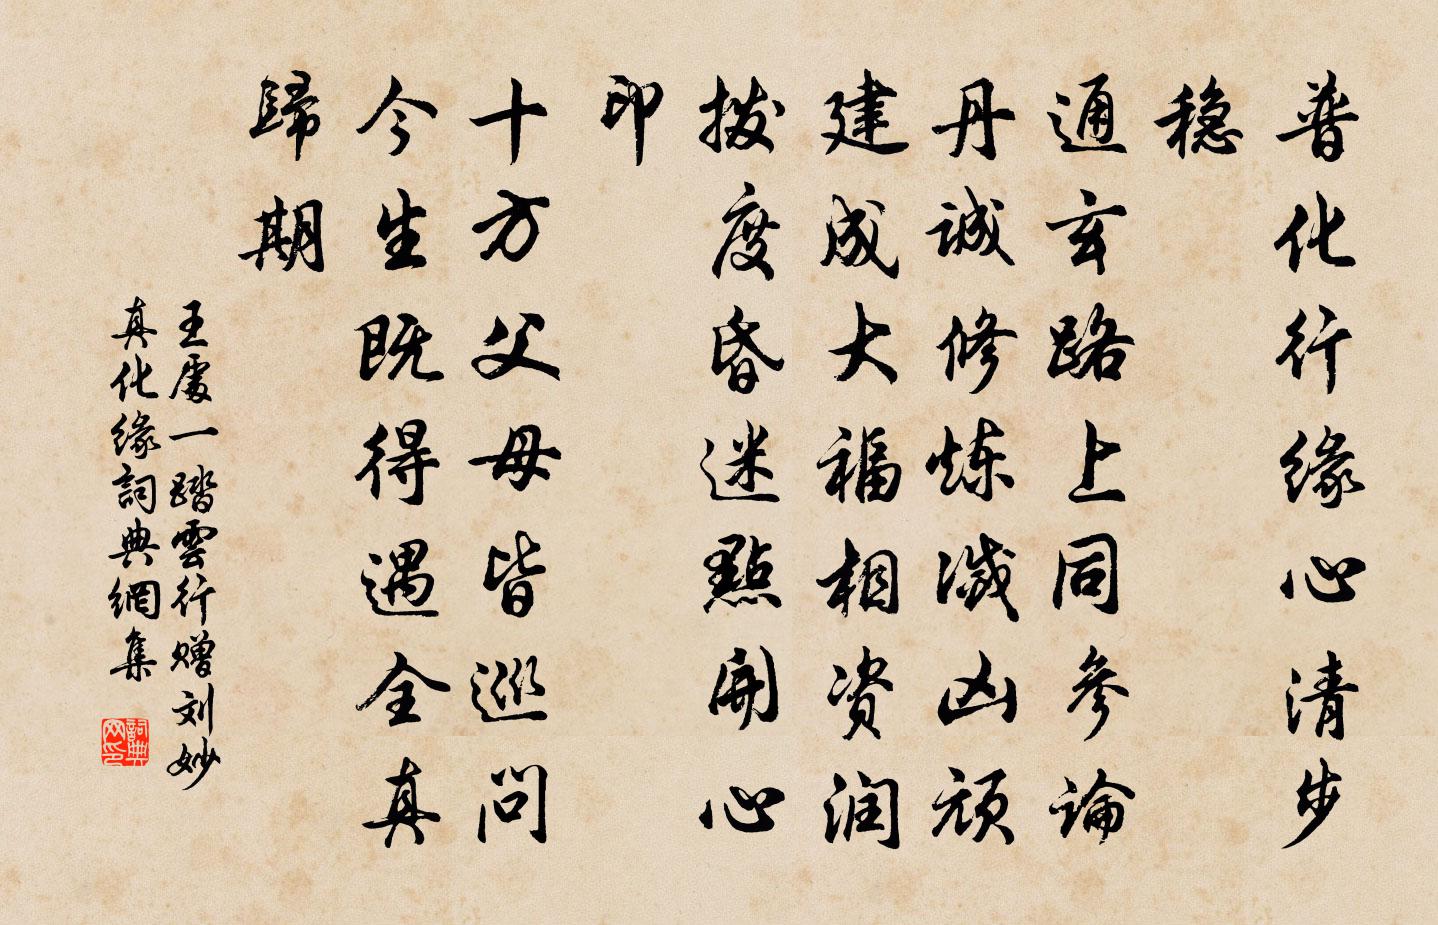 普化行缘心清步
穏
通玄路上同参論
丹诚修炼滅凶顽
建成大福相资润
拨度昏迷點開心
印
十方父母皆巡问
今生既得遇全真
歸期
王處一踏雲行赠刘妙
真化缘詞典網集
詞典
网印